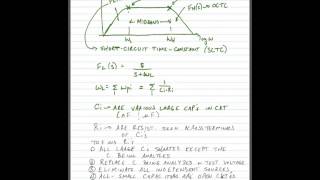 FH(s) → OCTC
← MIDBAND →
ωL
ωH
log ω
SHORT-CIRCUIT TIME-CONSTANT (SCTC)
FL(s) = S / S+ωL
ωL = Σ ωpi = Σ 1 / Ci·Ri
Ci - ARE VARIOUS LARGE CAP'S IN CKT
(nF | µF)
Ri - ARE RESIST. SEEN ACROSS TERMINALS
OF Ci's
TO FIND Ri
① ALL LARGE Ci SHORTED EXCEPT THE
C BEING ANALYZED
② REPLACE C BEING ANALYZED W TEST VOLTAGE
③ ELIMINATE ALL INDEPENDENT SOURCES,
④ ALL SMALL CAPACITORS ARE OPEN CKTED